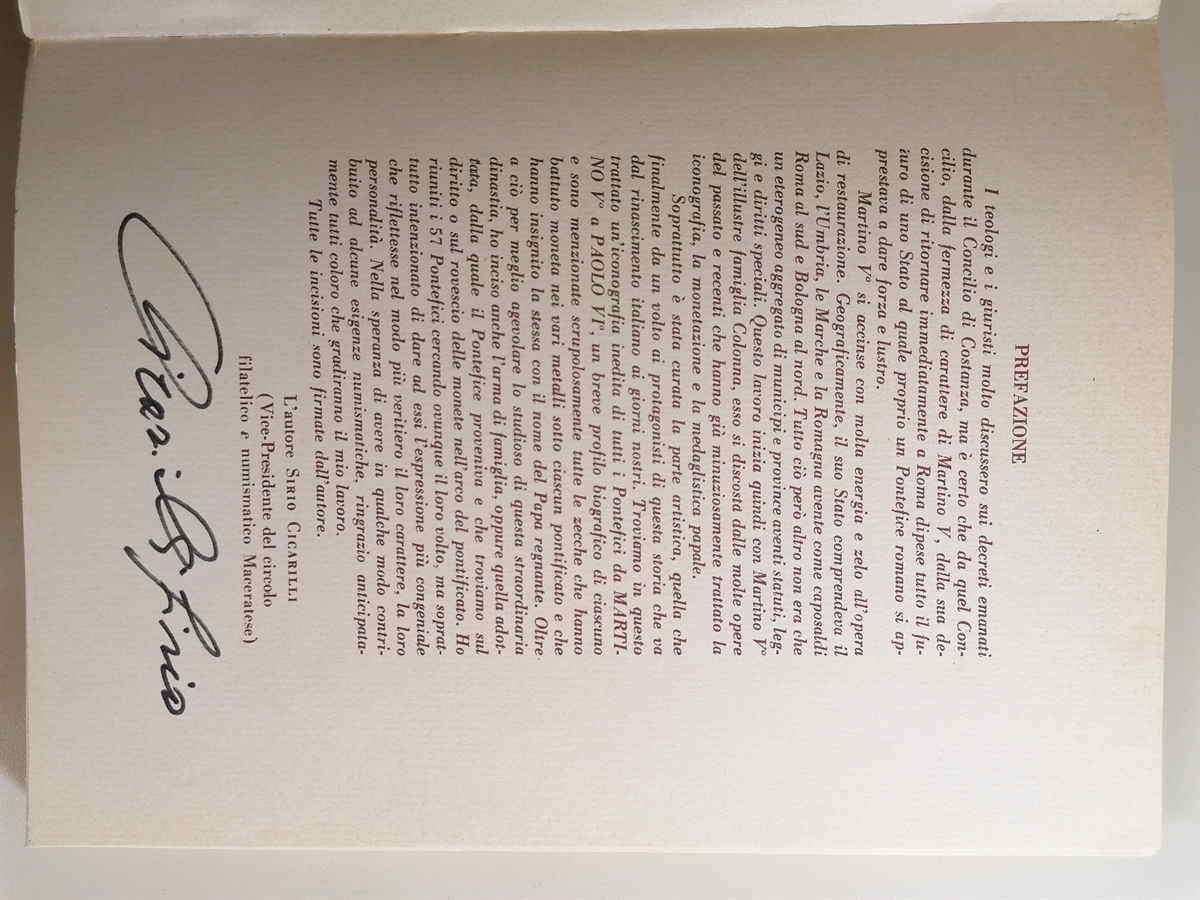 PREFAZIONE
I teologi e i giuristi molto discussero sui decreti emanati
durante il Concilio di Costanza, ma è certo che da quel Con-
cilio, dalla fermezza di carattere di Martino V, dalla sua de-
cisione di ritornare immediatamente a Roma dipese tutto il fu-
turo di uno Stato al quale proprio un Pontefice romano si ap-
prestava a dare forza e lustro.
Martino V° si accinse con molta energia e zelo all'opera
di restaurazione. Geograficamente, il suo Stato comprendeva il
Lazio, l'Umbria, le Marche e la Romagna avente come caposaldi
Roma al sud e Bologna al nord. Tutto ciò però altro non era che
un eterogeneo aggregato di municipi e province aventi statuti, leg-
gi e diritti speciali. Questo lavoro inizia quindi con Martino V°
dell'illustre famiglia Colonna, esso si discosta dalle molte opere
del passato e recenti che hanno già minuziosamente trattato la
iconografia, la monetazione e la medaglistica papale.
Soprattutto è stata curata la parte artistica, quella che
finalmente da un volto ai protagonisti di questa storia che va
dal rinascimento italiano ai giorni nostri. Troviamo in questo
trattato un'iconografia inedita di tutti i Pontefici da MARTI-
NO V° a PAOLO VI° un breve profilo biografico di ciascuno
e sono menzionate scrupolosamente tutte le zecche che hanno
battuto moneta nei vari metalli sotto ciascun pontificato e che
hanno insignito la stessa con il nome del Papa regnante. Oltre
a ciò per meglio agevolare lo studioso di questa straordinaria
dinastia, ho inciso anche l'arma di famiglia, oppure quella adot-
tata, dalla quale il Pontefice proveniva e che troviamo sul
diritto o sul rovescio delle monete nell'arco del pontificato. Ho
riuniti i 57 Pontefici cercando ovunque il loro volto, ma soprat-
tutto intenzionato di dare ad essi l'espressione più congeniale
che riflettesse nel modo più veritiero il loro carattere, la loro
personalità. Nella speranza di avere in qualche modo contri-
buito ad alcune esigenze numismatiche, ringrazio anticipata-
mente tutti coloro che gradiranno il mio lavoro.
Tutte le incisioni sono firmate dall'autore.
L'autore SIRIO CICARILLI
(Vice-Presidente del circolo
filatelico e numismatico Maceratese)